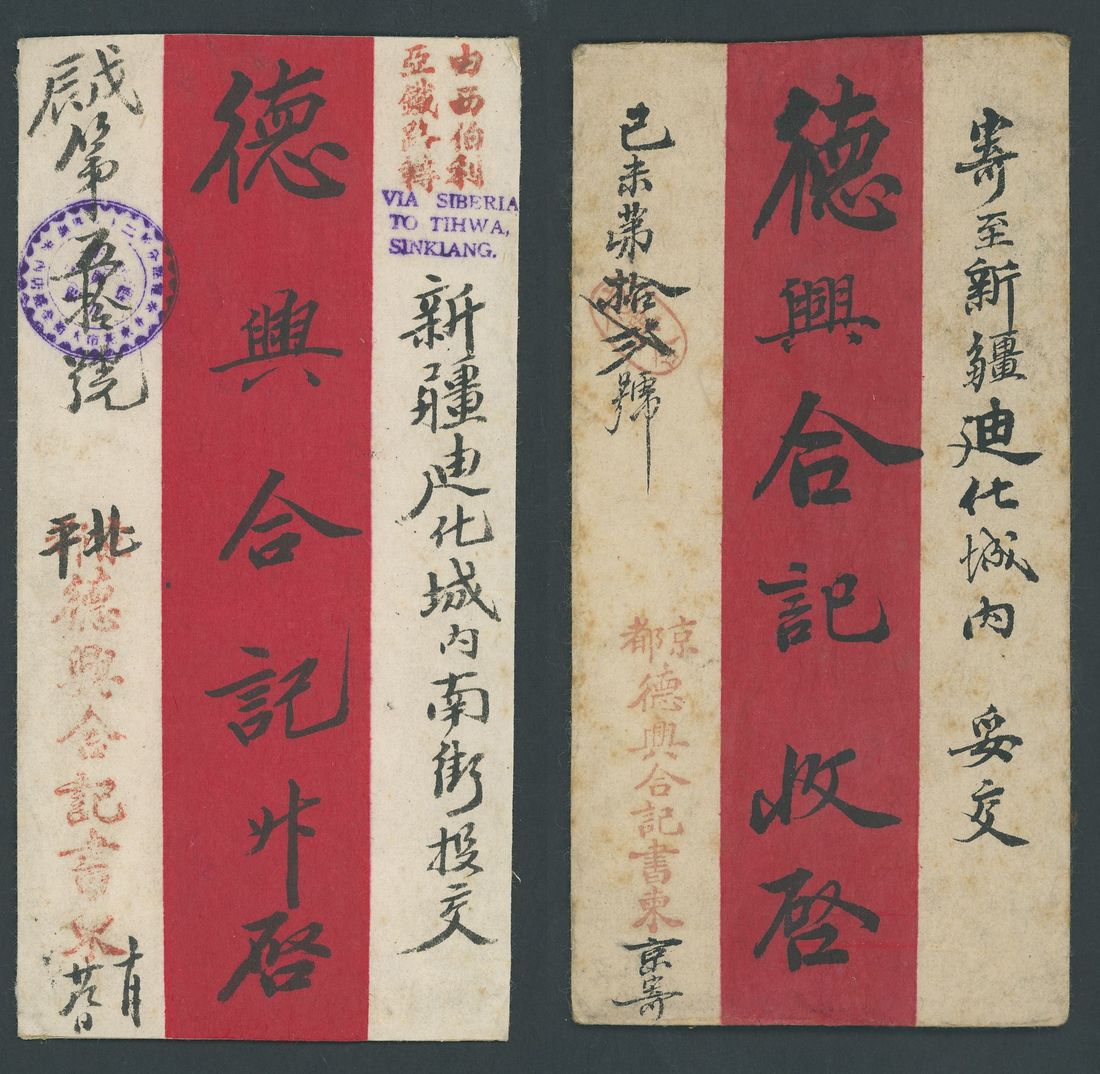 由西伯利
亞鐵路轉
VIA SIBERIA
TO TIHWA,
SINKIANG.
新疆廸化城内南街投交
德興合記升啓
戊辰第五拾號
北平
德興合記書柬
十月
寄至新疆廸化城内 妥交
德興合記收啓
己未第拾弐號
京都
德興合記書柬
京寄